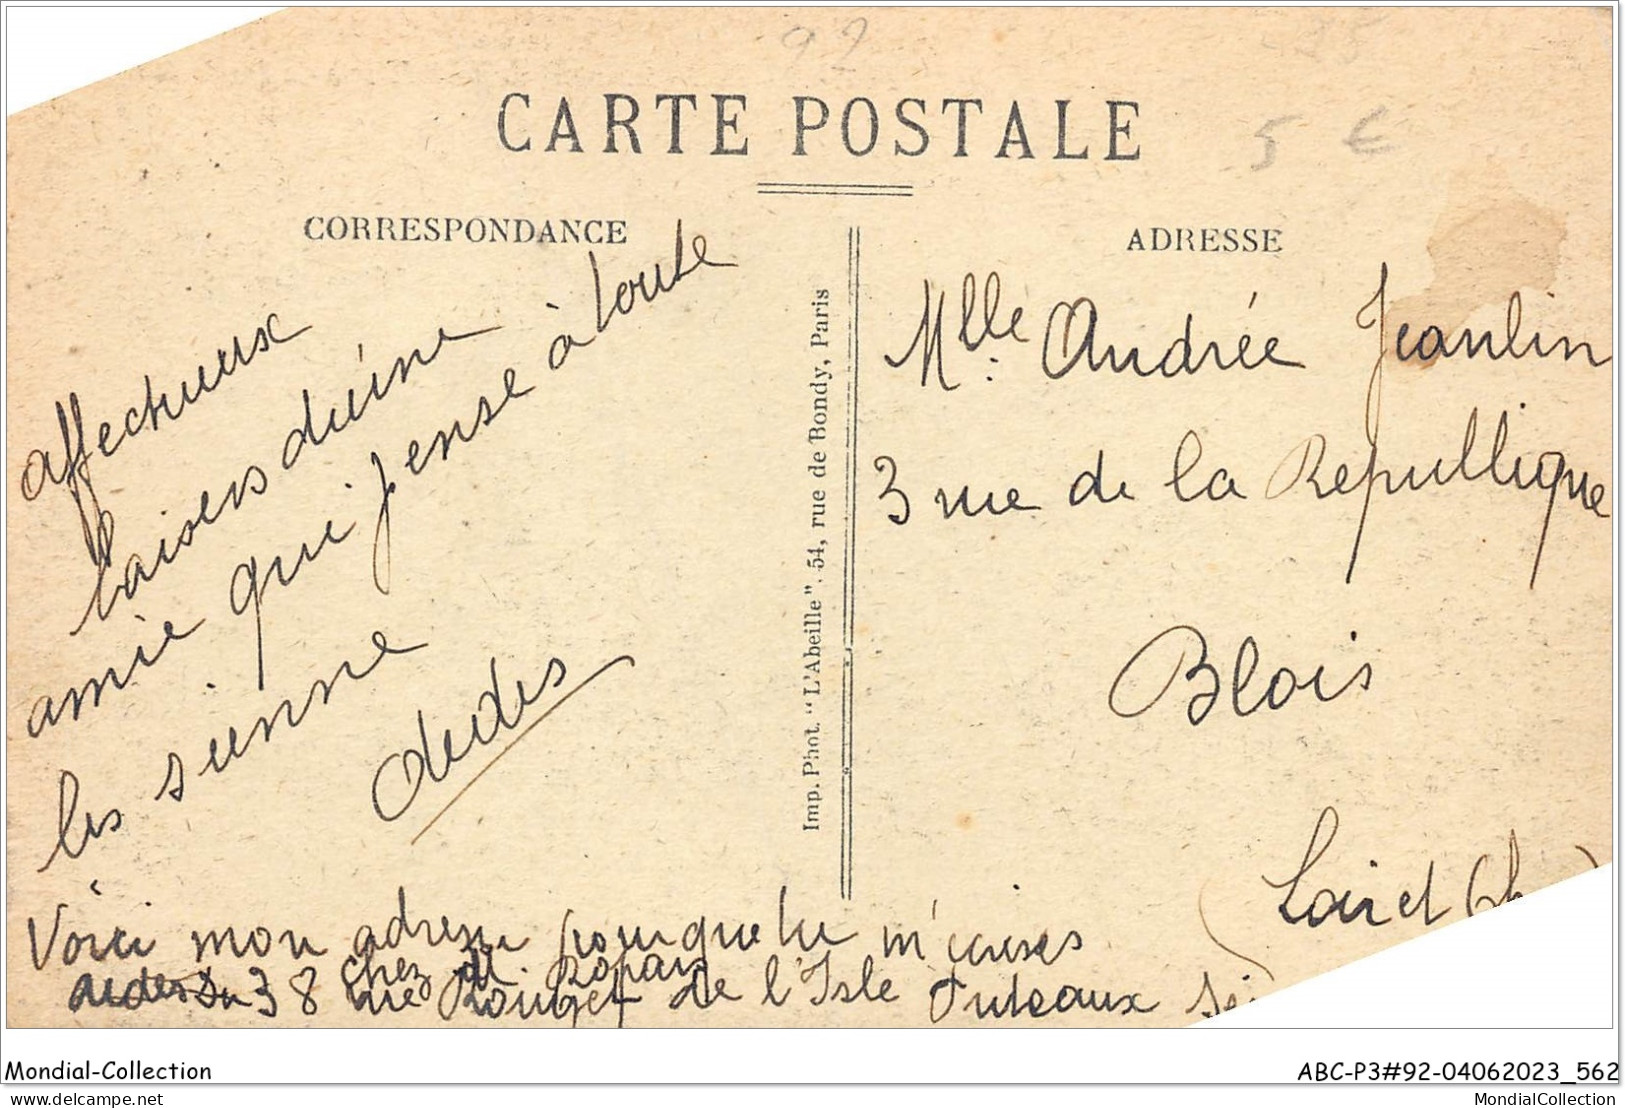 92
CARTE POSTALE
5 €
CORRESPONDANCE
affectueux
baisers d'une
amie qui pense à toute
les sienne
dedes
Voici mon adresse pour que tu m'écrives
chez M.
38 rue Rouget de l'Isle Puteaux
Imp. Phot. "L'Abeille". 54, rue de Bondy, Paris
ADRESSE
Mlle Andrée Jeanlin
3 rue de la Republlique
Blois
Loir et Ch
Mondial-Collection
ABC-P3#92-04062023_562
delcampe.net
MondialCollection